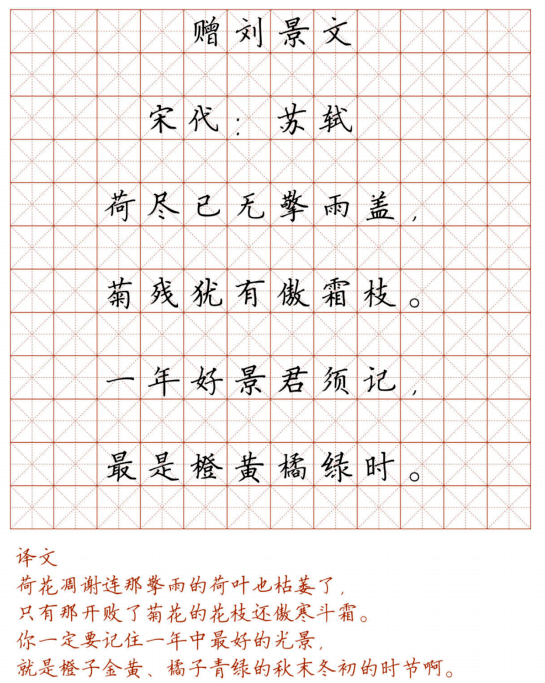 赠刘景文
宋代：苏轼
荷尽已无擎雨盖，
菊残犹有傲霜枝。
一年好景君须记，
最是橙黄橘绿时。
译文
荷花凋谢连那擎雨的荷叶也枯萎了，
只有那开败了菊花的花枝还傲寒斗霜。
你一定要记住一年中最好的光景，
就是橙子金黄、橘子青绿的秋末冬初的时节啊。